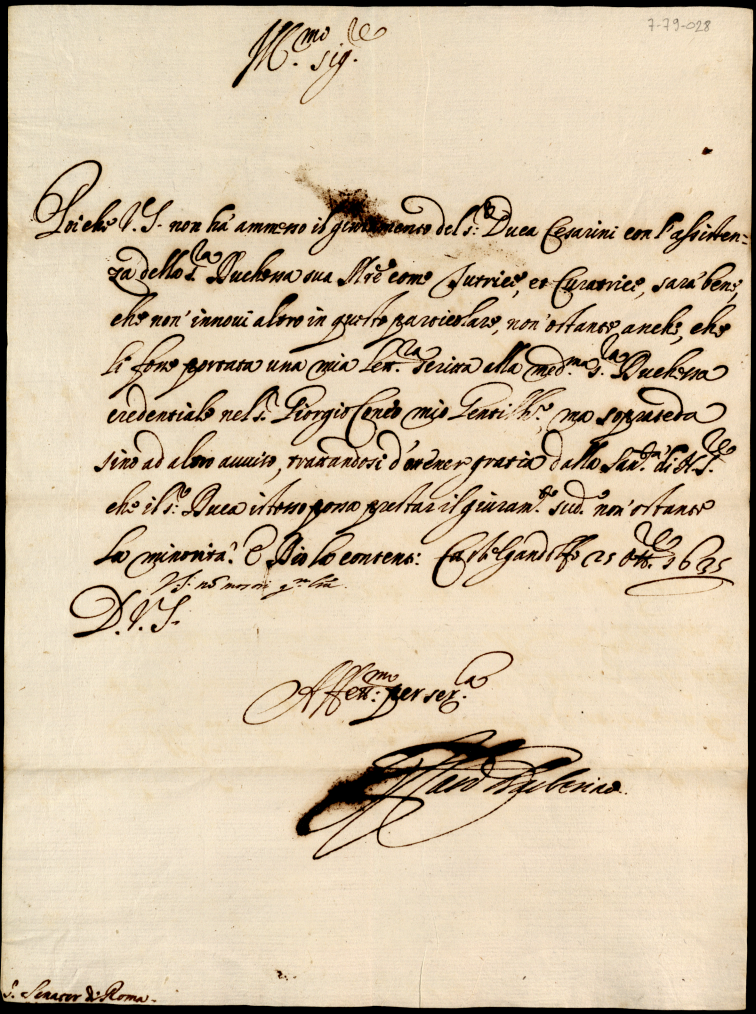 7-79-028
M.^mo sig.^re
Poiche V.S. non ha' ammesso il giuramento del s.^r Duca Cesarini con l'assisten=
za dello s.^la Duchessa sua M̃re come Tutrice, et Curatrice, sara' bene,
che non' innovi altro in questo particolare, non' ostante anche, che
li fosse portata una mia let.^ra scritta alla med.^ma s.^la Duchessa
credentiale nel s.^r Giorgio mio Gentilh.^o, ma sopraceda
sino ad altro avviso, trattandosi d'otener gratia dalla San.^ta di N.S.^re
che il s.^r Duca istesso possa prestar il giuram.^to sud.^o non' ostante
la minorita'. E Dio la content: Castelgandolfo 25 ott.^re 1635
V.S. no
D.V.S.
Affett.^mo per ser.^la
S. Senator di Roma.